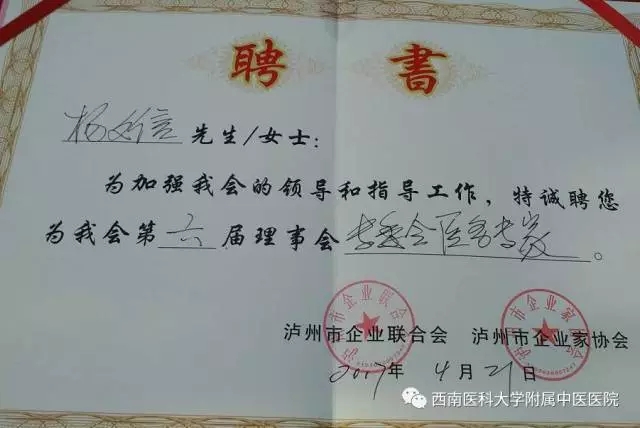 聘书
杨文信先生/女士:
为加强我会的领导和指导工作,特诚聘您
为我会第六届理事会专委会医务专家。
泸州市企业联合会 泸州市企业家协会
2017年4月21日
西南医科大学附属中医医院